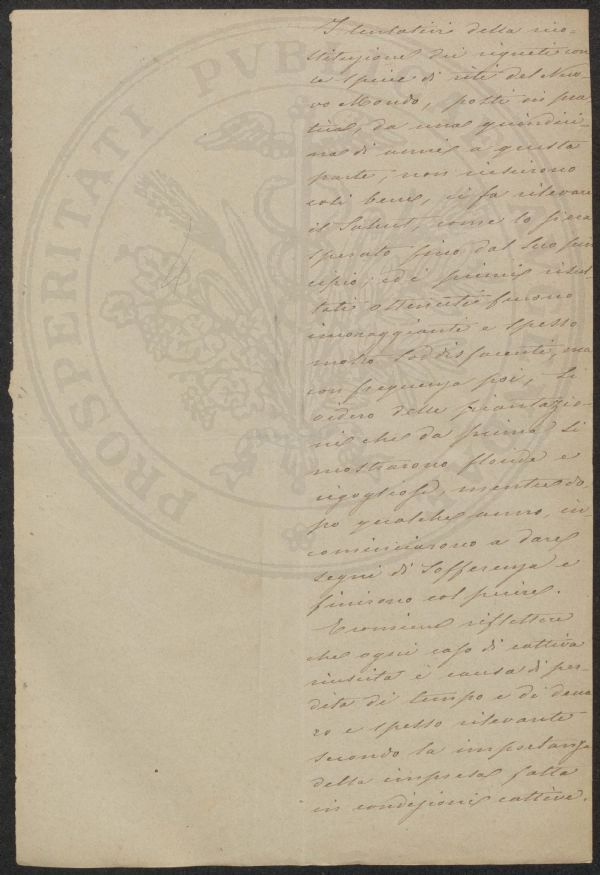 I tentativi della rico-
stituzione dei vigneti con
le specie di viti del Nuo-
vo Mondo, posti in pra-
tica, da una quindici-
na di anni a questa
parte, non riescirono
così bene, ci fa rilevare
il Sahut, come lo si era
sperato fino dal suo prin
cipio; ed i primi risul-
tati ottenuti furono
incoraggianti e spesso
molto soddisfacenti, ma
con frequenza poi, si
videro delle piantazio-
ni che da prima si
mostrarono floride e
rigogliose, mentre do-
po qualche anno, in
cominciarono a dare
segni di sofferenza e
finirono col perire.
riflettere
che ogni caso di cattiva
riuscita è causa di per-
dita di tempo e di dena
ro e spesso rilevante
secondo la importanza
della impresa fatta
in condizioni cattive.
PROSPERITATI PUBL